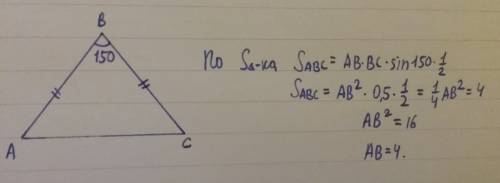 B
150
A
C
По S△-ка S_ABC = AB·BC·sin150·1/2
S_ABC = AB²·0,5·1/2 = 1/4 AB² = 4
AB² = 16
AB = 4.